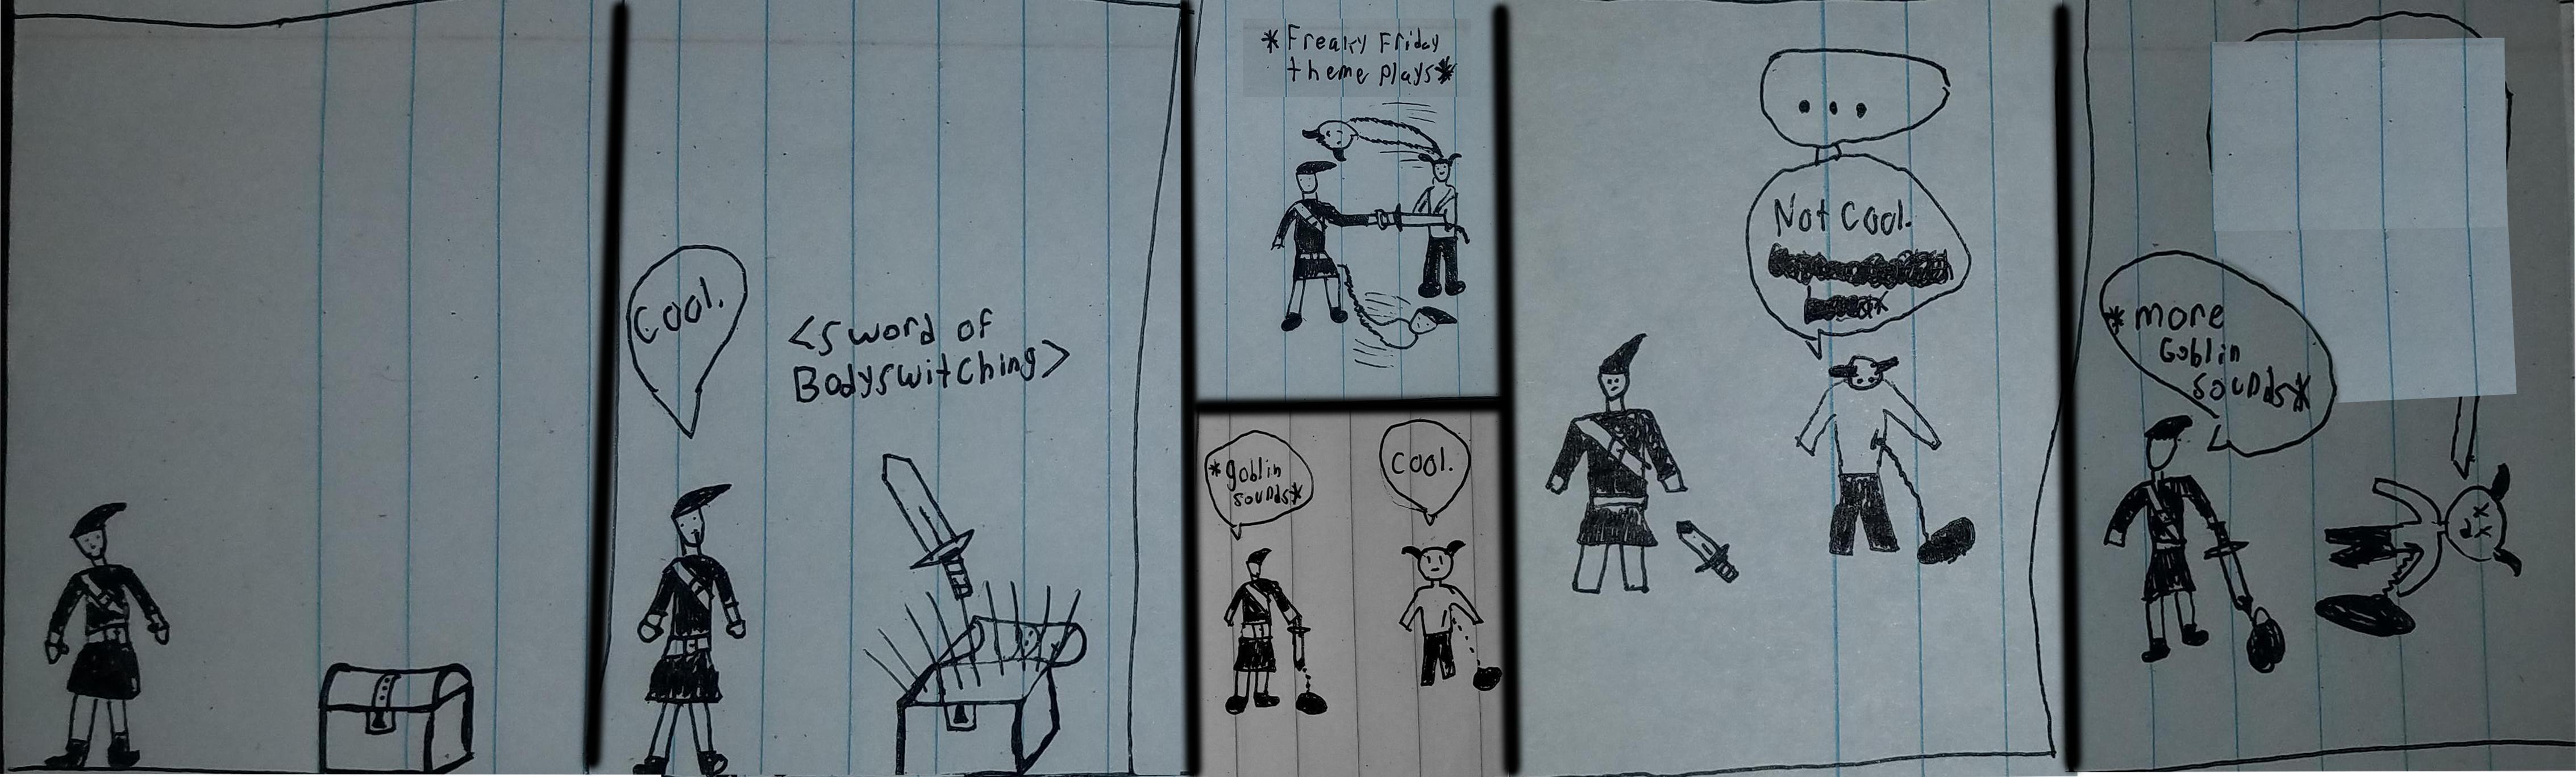 Cool.
<Sword of
Bodyswitching>
*Freaky Friday
theme plays*
*goblin
sounds*
Cool.
...
Not Cool.
*more
Goblin
sounds*